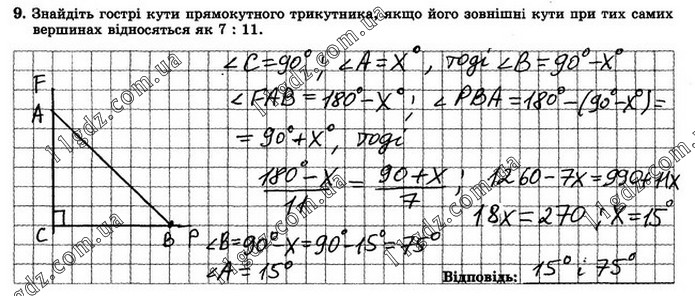 9. Знайдіть гострі кути прямокутного трикутника, якщо його зовнішні кути при тих самих
вершинах відносяться як 7 : 11.
∠C=90°; ∠A=x°, тоді ∠B=90°-x°
F
∠FAB=180°-x°; ∠PBA=180°-(90°-x°)=
A
=90°+x°, тоді
(180°-x)/11 = (90+x)/7; 1260-7x=990+11x
18x=270; x=15°
C B P
∠B=90°-x=90°-15°=75°
∠A=15°
Відповідь: 15° і 75°
11gdz.com.ua